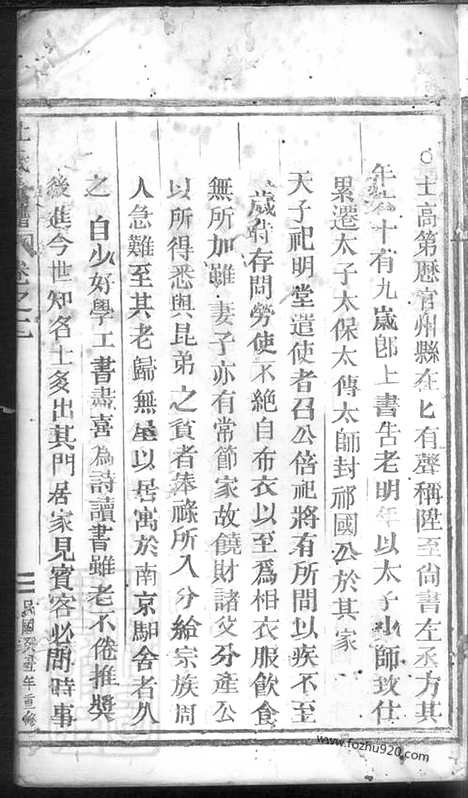 士高第歷官州縣在匕有聲稱陞至尚書左丞方其
年十有九歲卽上書告老明年以太子少師致仕
累遷太子太保太傅太師封祁國公於其家
天子祀明堂遣使者召公倍祀將有所問以疾不至
歲時存問勞使不絕自布衣以至爲相衣服飲食
無所加雖妻子亦有常節家故饒財諸父分產公
以所得悉與昆弟之貧者俸祿所入分給宗族周
人急難至其老歸無屋以居寓於南京馹舍者久
之自少好學工書畫喜為詩讀書雖老不倦推奬
後進今世知名士多出其門居家見賓客必問時事
卷之二
民國癸酉年重修
www.fozhu920.com